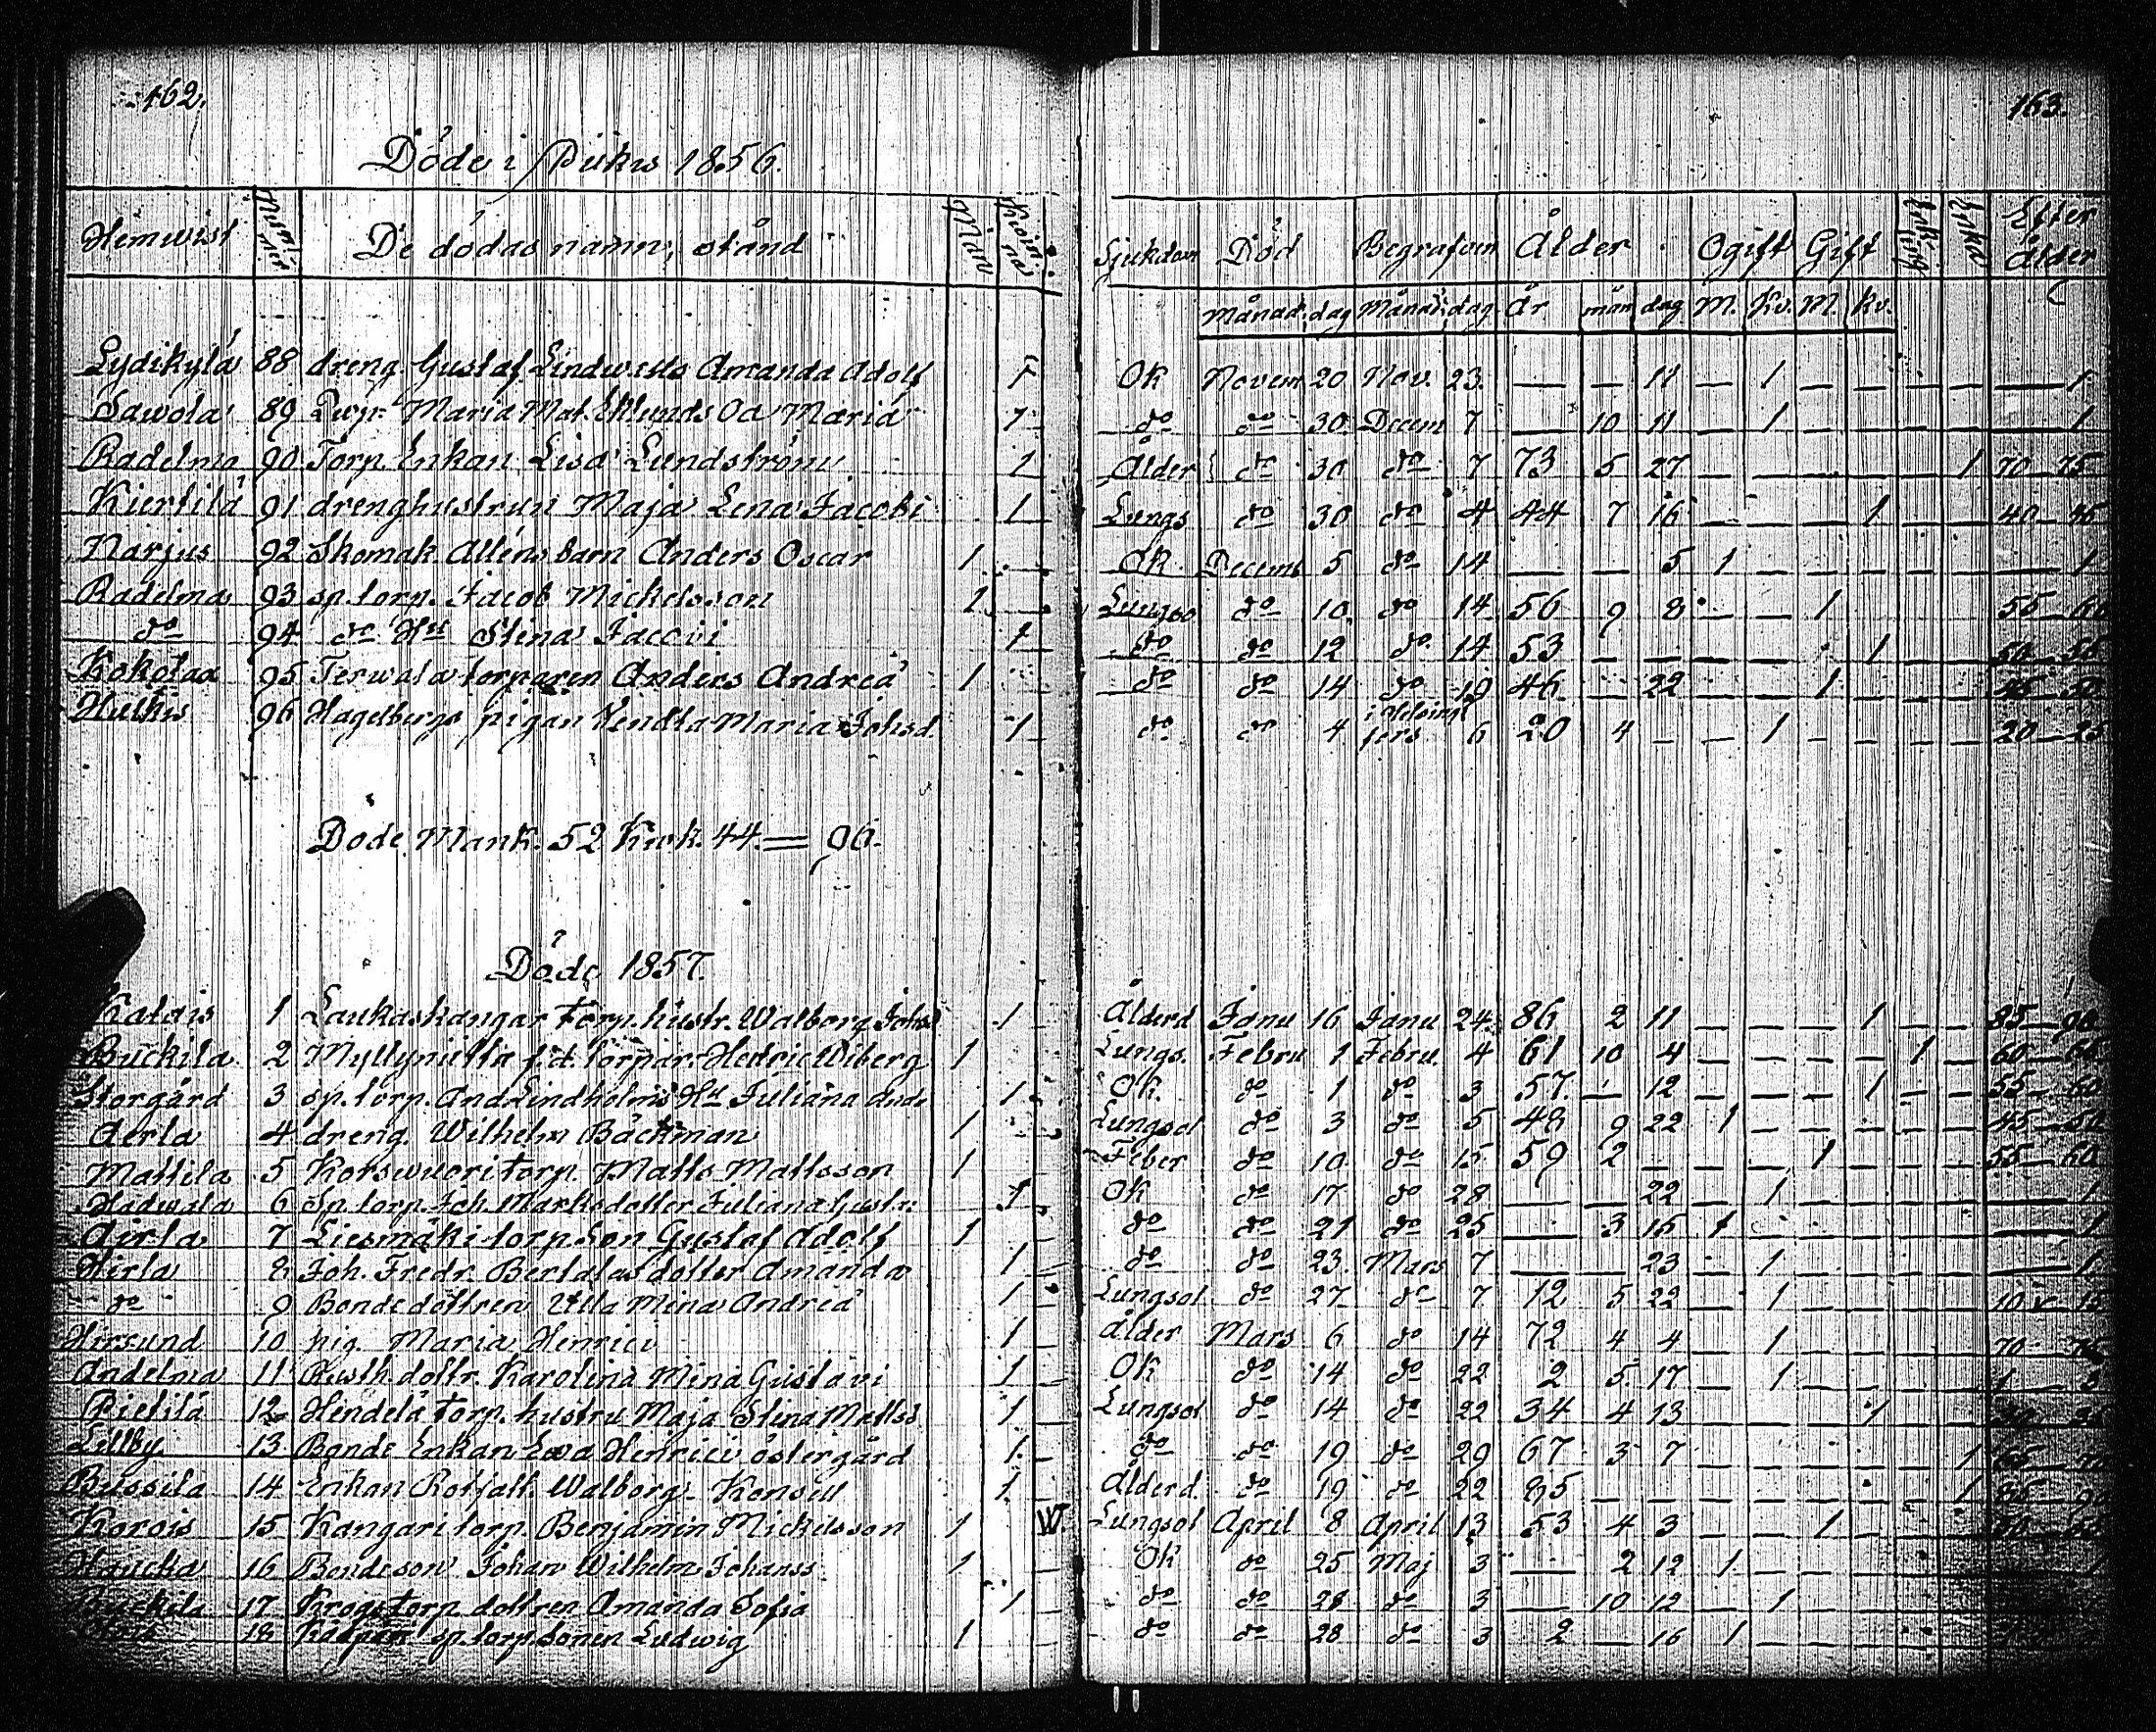 162.
163.
Döde i Pikis 1856.
Hemvist Numer De dödas namn, stånd Män Kvinnor Sjukdom Död Begrafven Ålder Ogift Gift Enkling Enka Efter Ålder
Månad. dag Månad. dag År mån dag M. Kv. M. Kv.
Lydikylä 88 dreng. Gustaf Amanda Adolf 1 Ok Novem 20 Nov. 23 — — 11 — 1 — — — — — 1
Sawola 89 Maria Mat. Eklunds Oä Maria 1 do do 30 Decem 7 — 10 11 — 1 — — — — — 1
Radelma 90 Torp. Enkan Lisa Lundström 1 Ålder do 30 do 7 73 5 27 — — — — — 1 70—75
Kiertilä 91 drenghustrun Maja Lena Jacobi 1 Lungs do 30 do 4 44 7 16 — — — 1 — — 40—45
Narjus 92 Skomak. Alléns barn Anders Oscar 1 Ok Decemb 5 do 14 — — 5 1 — — — — — — 1
Radelma 93 sp. torp. Jacob Mickelsson 1 Lungso do 10 do 14 56 9 8 — — 1 — — — 55—60
do 94 do Hu Stina Jacobi 1 do do 12 do 14 53 — — — — — 1 — — 50—55
Kokolaa 95 Terwala torparen Anders Andreä 1 do do 14 do 19 46 — 22 — — 1 — — — 45—50
Huttis 96 Hagelbergs pigan Vendla Maria Johsd. 1 do do 4 i Helsingfors 6 20 4 — — 1 — — — — 20—25
Döde Mank. 52 Kvk. 44. = 96.
Döde 1857.
Katais 1 Laukaskangar Torp. hustr. Walborg Johs 1 Ålderd Janu 16 Janu 24 86 2 11 — — — 1 — — 85—90
Buckila 2 f.d. torpar. Hedric Wiberg 1 Lungs. Febru 1 Febru. 4 61 10 4 — — — — 1 — 60—65
Storgård 3 sp. torp. And Lindholms Hu Juliana Ands 1 Ok. do 1 do 3 57. — 12 — — — 1 — — 55—60
Aerla 4 dreng. Wilhelm Bäckman 1 Lungsol do 3 do 5 48 9 22 1 — — — — — 45—50
Mattila 5 Korswuori torp. Matts Mattsson 1 Feber do 10 do 15 59 2 — — — 1 — — — 55—60
Hadwala 6 Sp. torp. Joh. Marks dotter Juliana Gustr. 1 Ok do 17 do 28 — — 22 — 1 — — — — — 1
Airla 7 Liesmäki torp. Son Gustaf Adolf 1 do do 21 do 25 — 3 15 1 — — — — — — 1
Hirla 8 Joh. Fredr. Bertalas dotter Amanda 1 do do 23. Mars 7 — — 23 — 1 — — — — — 1
do 9 Bonde dottren Ulla Mina Andreä 1 Lungsol do 27 do 7 12 5 22 — 1 — — — — 10—15
Hirsund 10 pig. Maria Henrici 1 Ålder Mars 6 do 14 72 4 4 1 — — — — 70—75
Andelma 11 Rusth. dottr. Karolina Mina Gustavi 1 Ok do 14 do 22 2 5 17 — 1 — — — — 1—3
Pietilä 12 Hendelä torp. hustru Maja Stina Mattsd 1 Lungsol do 14 do 22 34 4 13 — — — 1 — — 30—35
Lillby 13 Bonde Enkan Ewa Henrici östergård 1 do do 19 do 29 67 3 7 — — — — — 1 65—70
Bussila 14 Enkan Walborg 1 Ålderd do 19 do 22 85 — — — — — — 1 85—90
Korois 15 Kangari torp. Benjamin Mickelsson 1 W. Lungsol April 8 April 13 53 4 3 — — 1 — — 50—55
Haucka 16 Bondeson Johan Wilhelm Johanss. 1 Ok do 25 Maj 3 — 2 12 1 — — — — — 1
Buckila 17 Krogstorp dottren Amanda Sofia 1 do do 28 do 3 — 10 12 — 1 — — —
18 sp. torp. Sonen Ludwig 1 do do 28 do 3 2 — 16 1 — — —